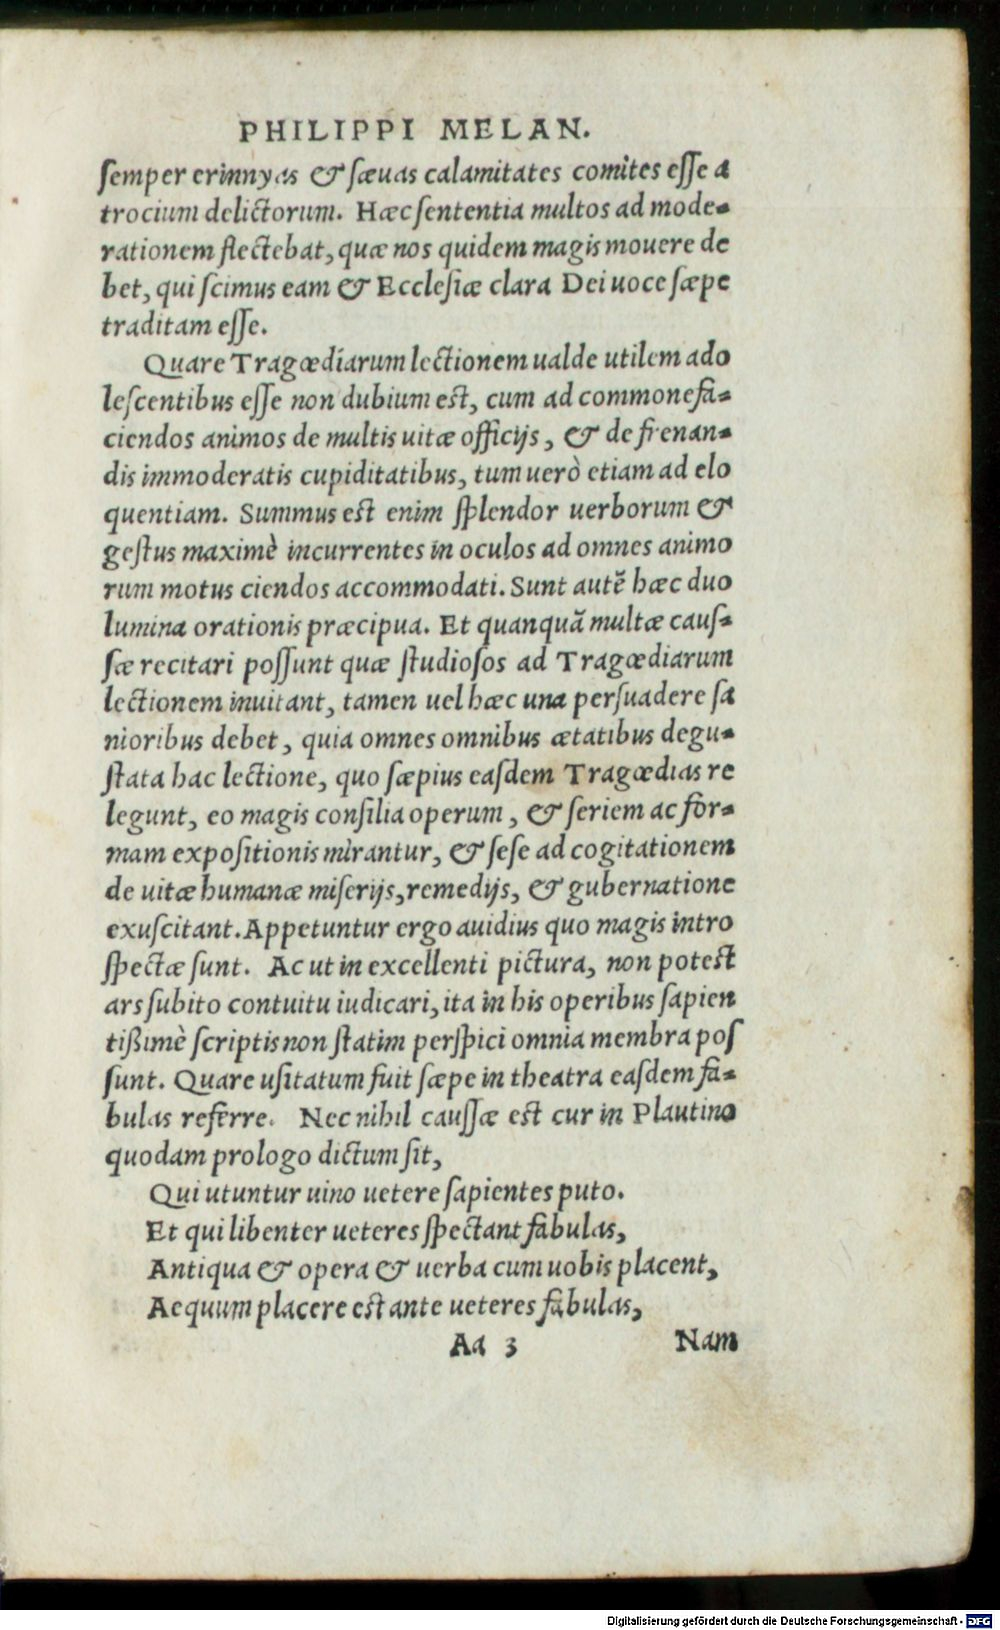 PHILIPPI MELAN.
semper erinnyas & sæuas calamitates comites esse a
trocium delictorum. Hæc sententia multos ad mode-
rationem flectebat, quæ nos quidem magis mouere de
bet, qui scimus eam & Ecclesiæ clara Dei uoce sæpe
traditam esse.
Quare Tragœdiarum lectionem ualde utilem ado
lescentibus esse non dubium est, cum ad commonefa-
ciendos animos de multis uitæ officijs, & de frenan-
dis immoderatis cupiditatibus, tum uerò etiam ad elo
quentiam. Summus est enim splendor uerborum &
gestus maximè incurrentes in oculos ad omnes animo
rum motus ciendos accommodati. Sunt autẽ hæc duo
lumina orationis præcipua. Et quanquã multæ caus-
sæ recitari possunt quæ studiosos ad Tragœdiarum
lectionem inuitant, tamen uel hæc una persuadere sa
nioribus debet, quia omnes omnibus ætatibus degu-
stata hac lectione, quo sæpius easdem Tragœdias re
legunt, eo magis consilia operum, & seriem ac for-
mam expositionis mirantur, & sese ad cogitationem
de uitæ humanæ miserijs, remedijs, & gubernatione
exuscitant. Appetuntur ergo auidius quo magis intro
spectæ sunt. Ac ut in excellenti pictura, non potest
ars subito contuitu iudicari, ita in his operibus sapien
tißimè scriptis non statim perspici omnia membra pos
sunt. Quare usitatum fuit sæpe in theatra easdem fa-
bulas referre. Nec nihil caussæ est cur in Plautino
quodam prologo dictum sit,
Qui utuntur uino uetere sapientes puto.
Et qui libenter ueteres spectant fabulas,
Antiqua & opera & uerba cum uobis placent,
Aequum placere est ante ueteres fabulas,
Aa 3 Nam
Digitalisierung gefördert durch die Deutsche Forschungsgemeinschaft - DFG